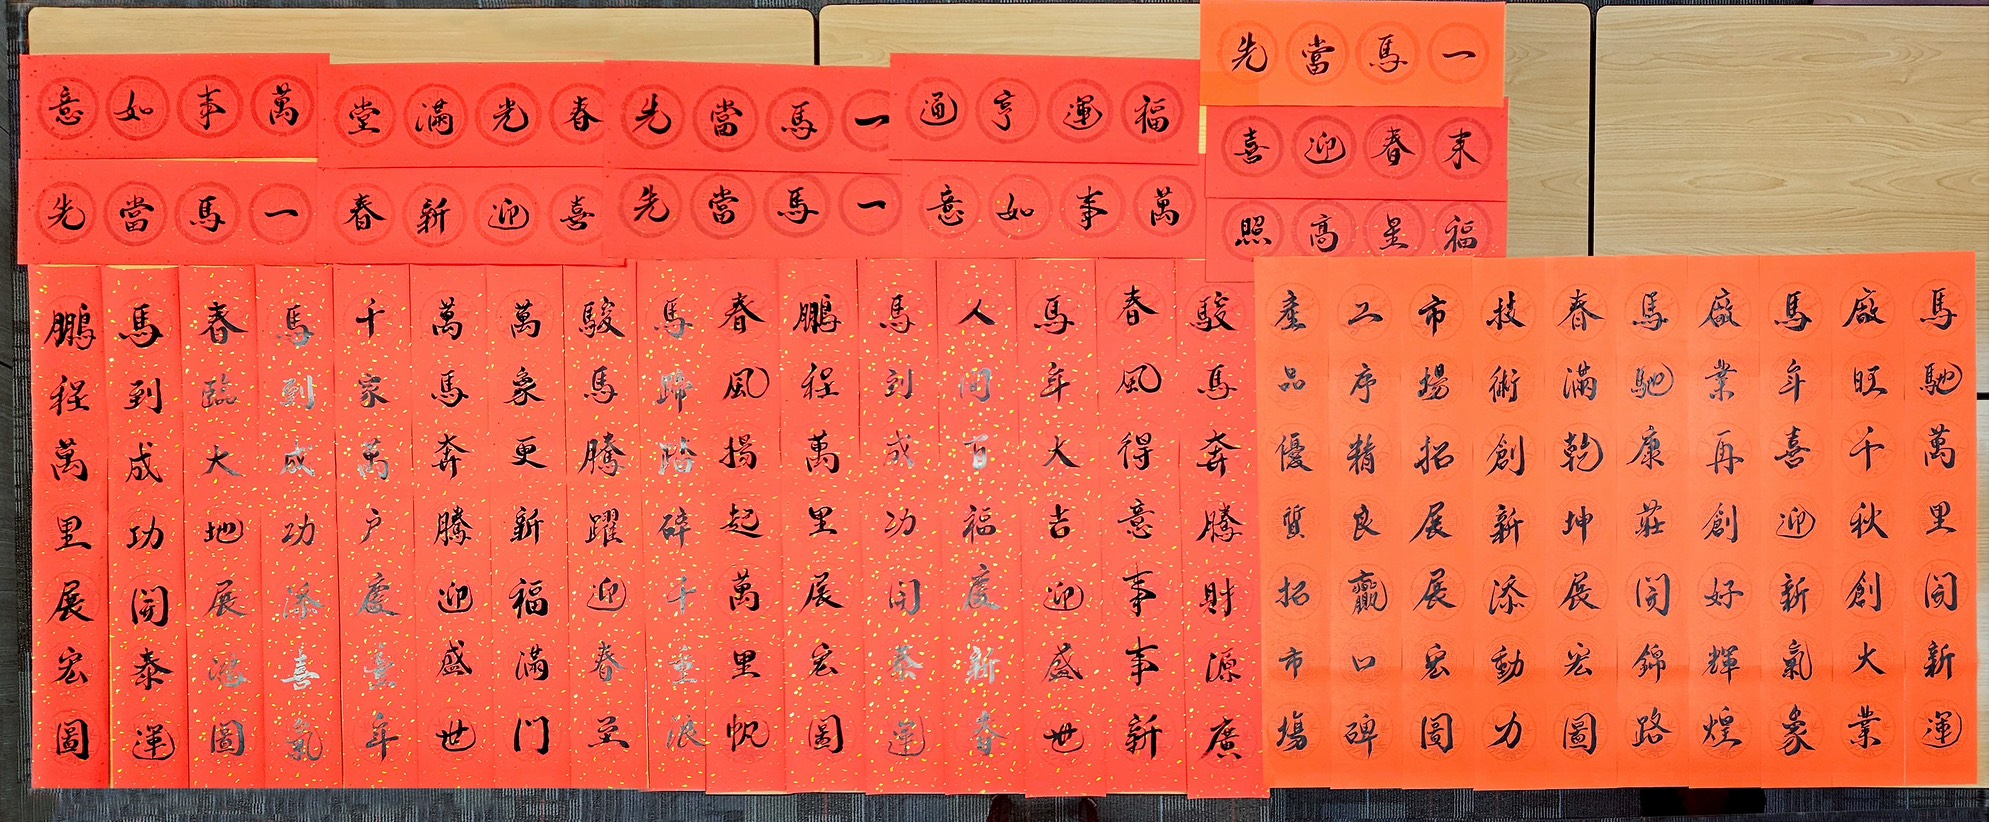 一馬當先
福運亨通
一馬當先
春光滿堂
萬事如意
来春迎喜
福星高照
萬事如意
一馬當先
喜迎新春
一馬當先
馬馳萬里開新運
廠旺千秋創大業
馬年喜迎新氣象
廠業再創好輝煌
馬馳康莊開錦路
春滿乾坤展宏圖
技術創新添動力
市場拓展展宏圖
工序精良贏口碑
產品優質拓市場
駿馬奔騰財源廣
春風得意事事新
馬年大吉迎盛世
人間百福慶新春
馬到成功開泰運
鵬程萬里展宏圖
春風揚起萬里帆
馬蹄踏碎千重浪
駿馬騰躍迎春至
萬象更新福滿門
萬馬奔騰迎盛世
千家萬戶慶豐年
馬到成功添喜氣
春臨大地展鴻圖
馬到成功開泰運
鵬程萬里展宏圖